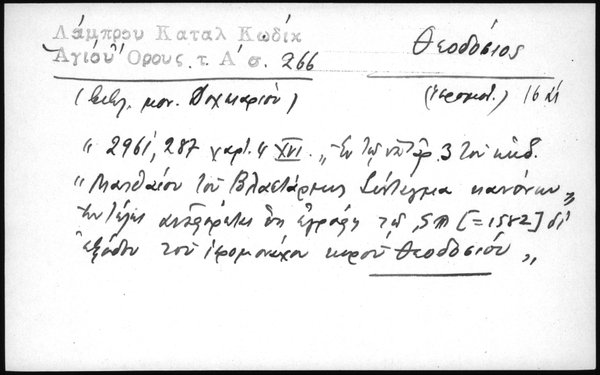 Λάμπρου Καταλ Κωδίκ
Ἁγίου Ὄρους. τ. Α΄ σ. 266
Θεοδόσιος
(Βιβλ. μον. Δοχειαρίου)
(ἱερομ.) 16
" 2961, 287 χαρτ. 4 XVI. „ Ἐν τῷ ὑπ' ἀρ. 3 τοῦ κώδ.
" Ματθαίου τοῦ Βλαστάρεως Σύνταγμα κανόνων „
ἐν τέλει ὅτι ἐγράφη τῷ [=1582] δι'
ἐξόδου τοῦ ἱερομονάχου κυροῦ Θεοδοσίου „